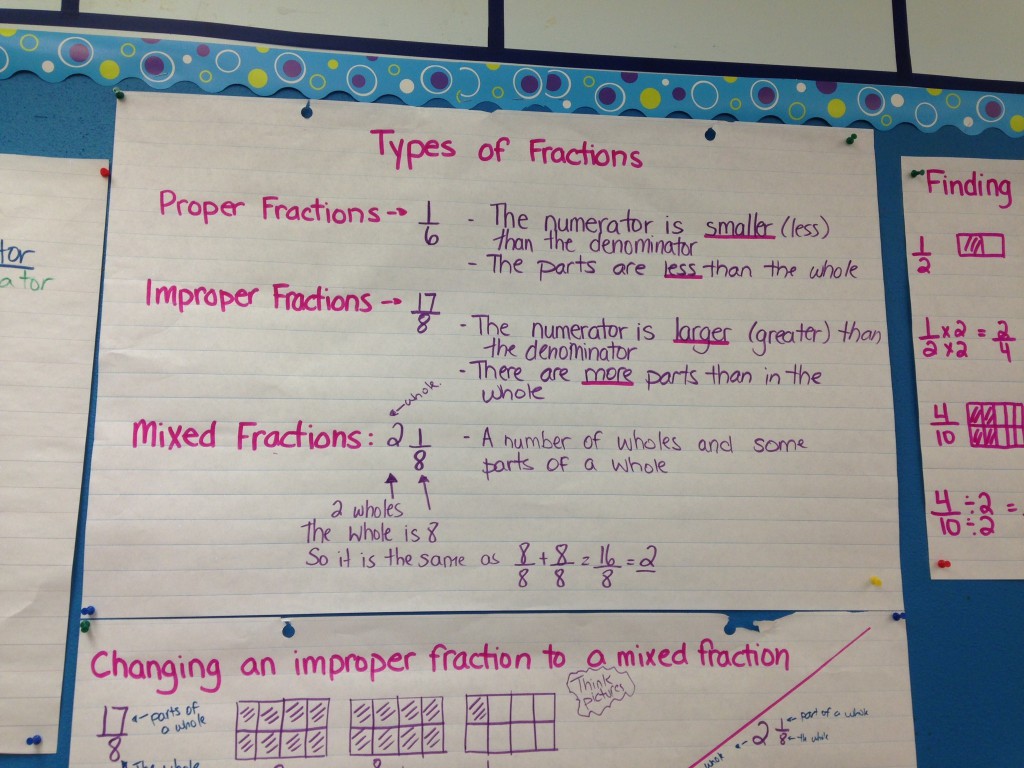 Types of Fractions
Proper Fractions → 1/6 - The numerator is smaller (less)
than the denominator
- The parts are less than the whole
Improper Fractions → 17/8
- The numerator is larger (greater) than
the denominator
- There are more parts than in the
whole
← whole
Mixed Fractions: 2 1/8 - A number of wholes and some
parts of a whole
2 wholes
The whole is 8
So it is the same as 8/8 + 8/8 = 16/8 = 2
Changing an improper fraction to a mixed fraction
Think
pictures
17/8 ← parts of
a whole
The whole
2 1/8 ← part of a whole
← the whole
whole
tor
ator
Finding
1/2
1/2 x2/x2 = 2/4
4/10
4/10 ÷2/÷2 =